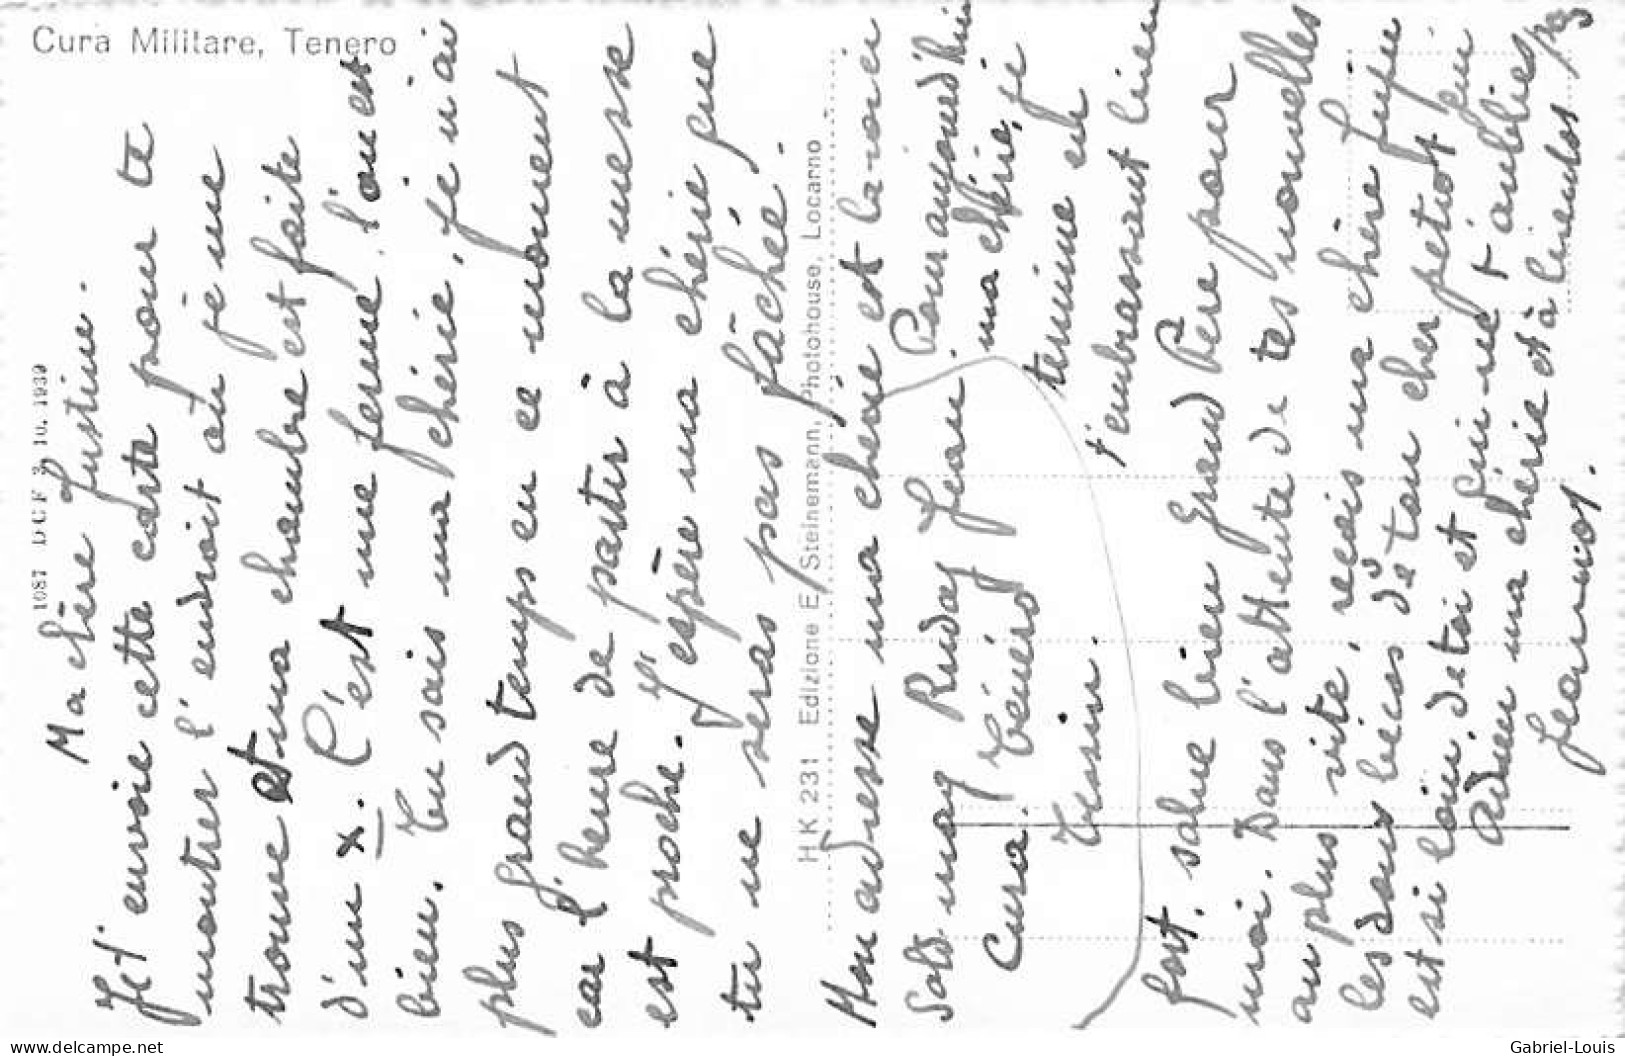 Cura Militare, Tenero
1087 DCF 3. 10. 1939
Ma chère Justine.
Je t'envoie cette carte pour te
montrer l'endroit où je me
trouve et ma chambre est faite
d'un x. C'est une ferme, l'on est
bien. Tu sais ma chérie, je n'ai
plus grand temps en ce moment
car l'heure de partir à la messe
est proche. J'espère ma chérie que
tu ne seras pas fâchée.
HK 231 Edizione E. Steinemann, Photohouse, Locarno
Mon adresse ma chérie est la-voici
Sold. Rudaz Jean.
Cura. Ténéro
Tessin.
Pour aujourd'hui
ma chérie, je
termine en
t'embrassant bien
fort. salue bien Grand Père pour
moi. Dans l'attente de tes nouvelles
au plus vite, reçois ma chère Juju
les doux bécos de ton cher petiot qui
est si loin de toi et qui ne t'oublies pas
Adieu ma chérie et à bientôt
Jeannot.
www.delcampe.net
Gabriel-Louis